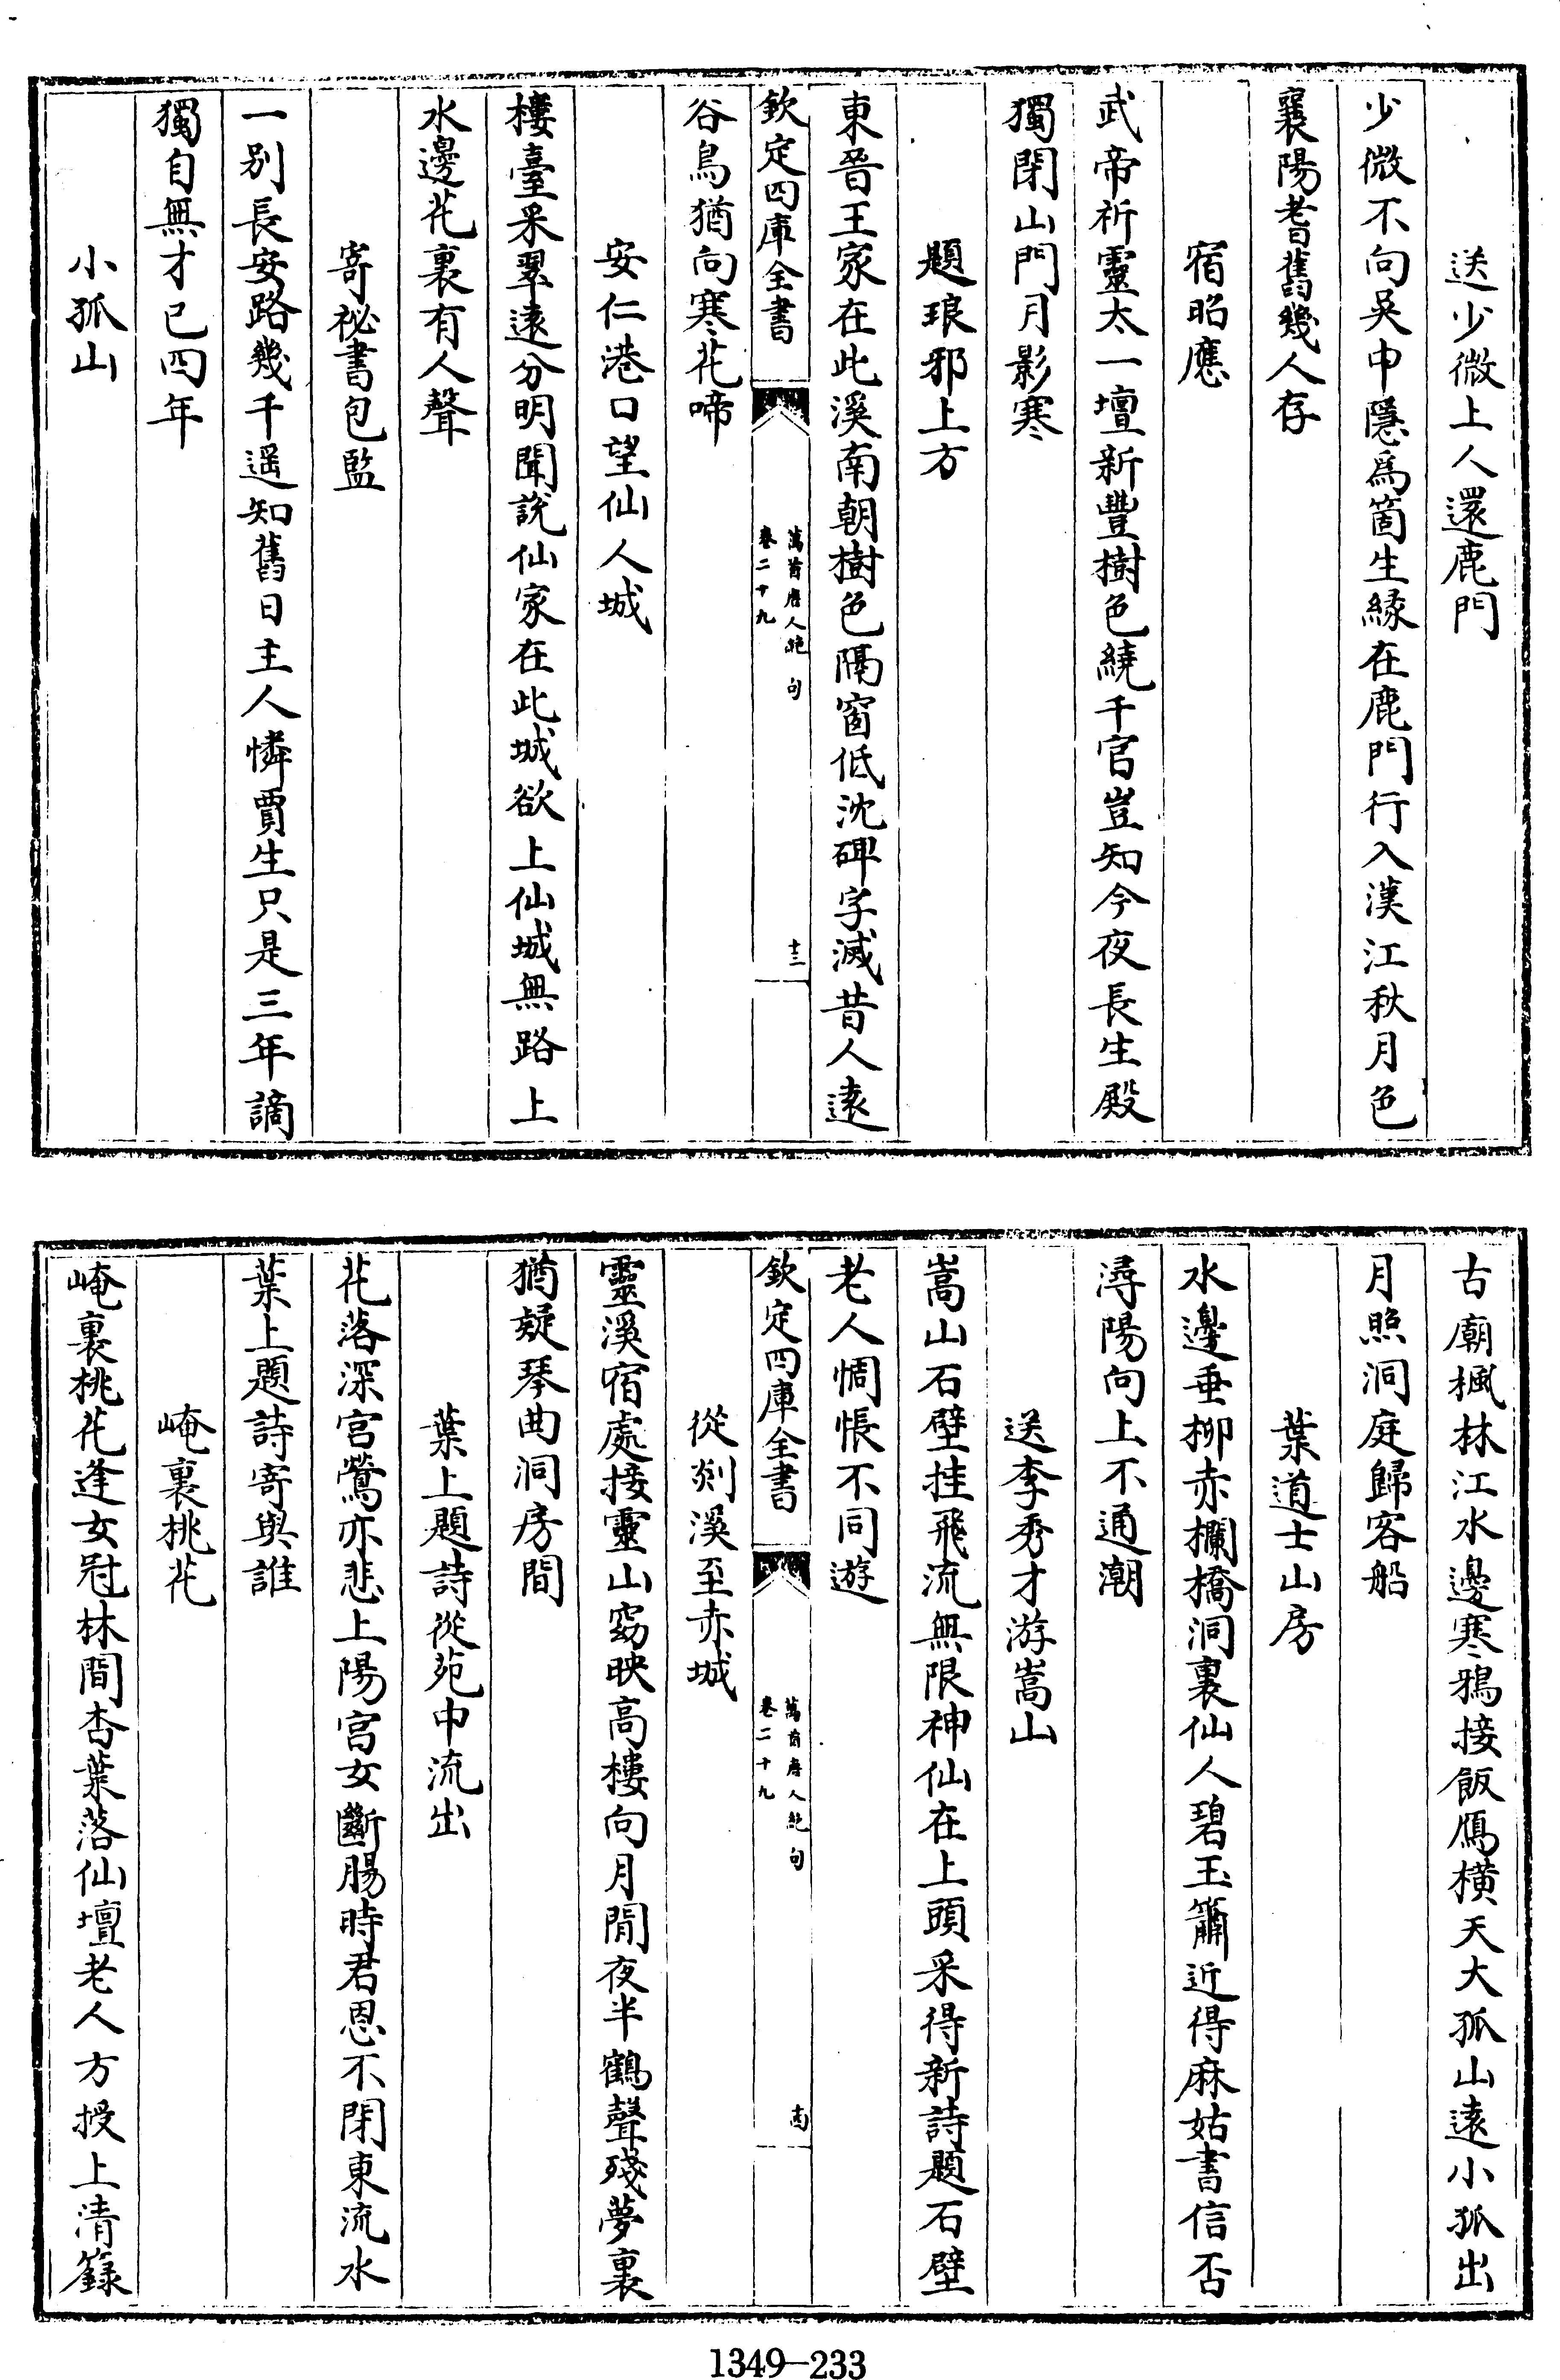 送少微上人還鹿門
少微不向吳中隱爲箇生緣在鹿門行入漢江秋月色
襄陽耆舊幾人存
宿昭應
武帝祈靈太一壇新豐樹色繞千官豈知今夜長生殿
獨閉山門月影寒
題琅邪上方
東晉王家在此溪南朝樹色隔窗低沈碑字滅昔人遠
欽定四庫全書
萬首唐人絶句
卷二十九
十三
谷鳥猶向寒花啼
安仁港口望仙人城
樓臺采翠遠分明聞說仙家在此城欲上仙城無路上
水邊花裏有人聲
寄祕書包監
一别長安路幾千遥知舊日主人憐賈生只是三年謫
獨自無才已四年
小孤山
古廟楓林江水邊寒鴉接飯鴈橫天大孤山遠小孤出
月照洞庭歸客船
葉道士山房
水邊垂柳赤欄橋洞裏仙人碧玉簫近得麻姑書信否
潯陽向上不通潮
送李秀才游嵩山
嵩山石壁挂飛流無限神仙在上頭采得新詩題石壁
老人惆悵不同遊
欽定四庫全書
萬首唐人絶句
卷二十九
十四
從剡溪至赤城
靈溪宿處接靈山窈映高樓向月閒夜半鶴聲殘夢裏
猶疑琴曲洞房間
葉上題詩從苑中流出
花落深宫鶯亦悲上陽宫女斷腸時君恩不閉東流水
葉上題詩寄與誰
崦裏桃花
崦裏桃花逢女冠林間杏葉落仙壇老人方授上清籙
1349-233